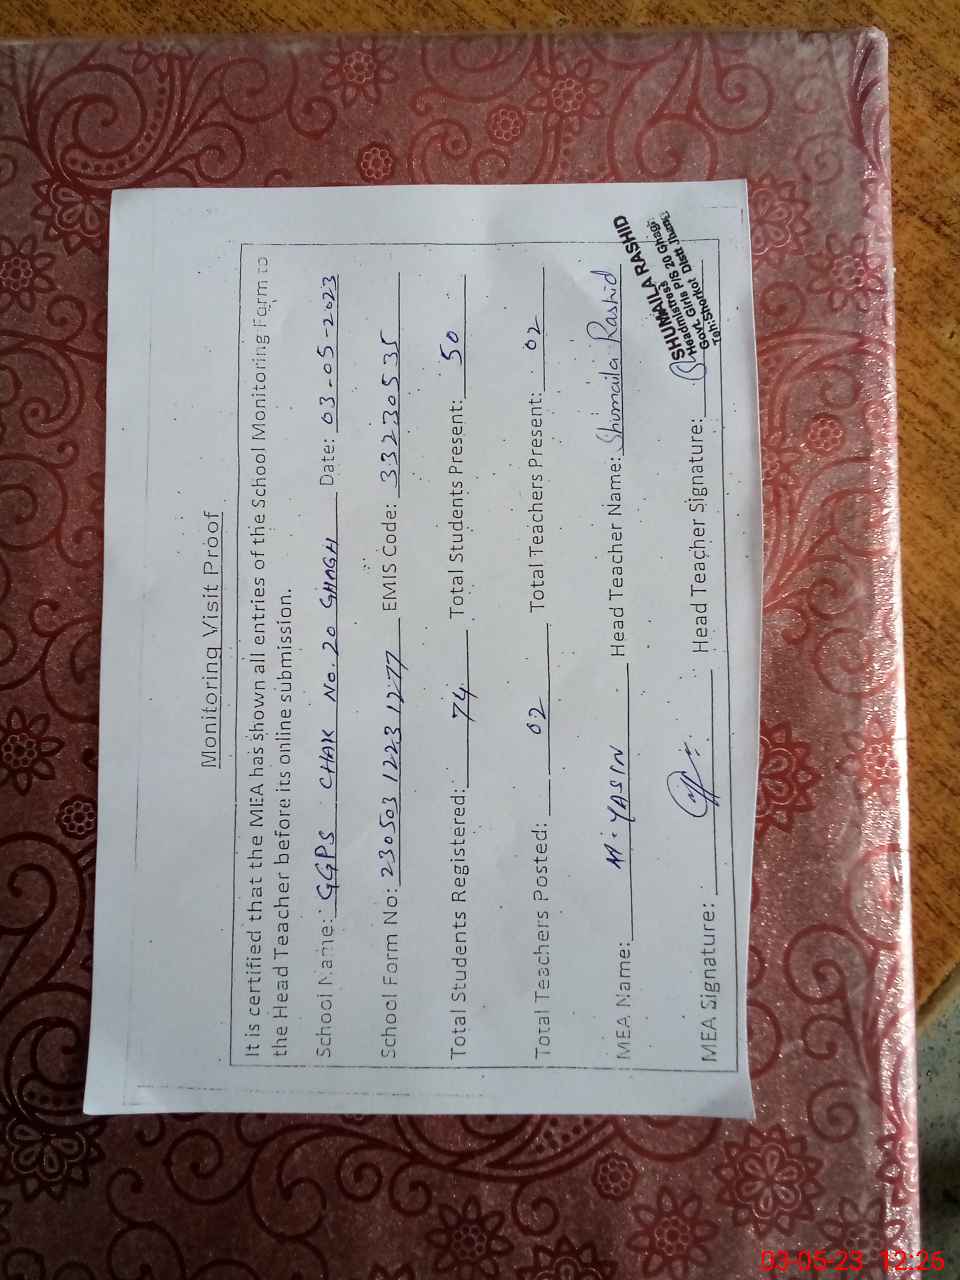 Monitoring Visit Proof
It is certified that the MEA has shown all entries of the School Monitoring Form to
the Head Teacher before its online submission.
School Name: GGPS CHAK No. 20 GHAGH Date: 03-05-2023
School Form No: 230503122312 77 EMIS Code: 33230535
Total Students Registered: 74 Total Students Present: 50
Total Teachers Posted: 02 Total Teachers Present: 02
MEA Name: M. YASIN Head Teacher Name: Shumaila Rashid
MEA Signature: Head Teacher Signature:
SHUMAILA RASHID
Headmistress
Govt. Girls P/S 20 Ghagh
Teh: Shorkot Distt Jhang
03-05-23 12:26